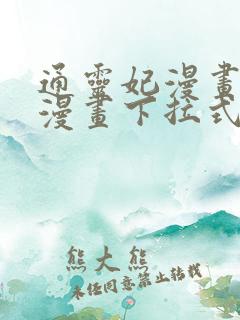 通靈妃漫畫
漫畫下拉式
熊大熊
未经同意禁止转载